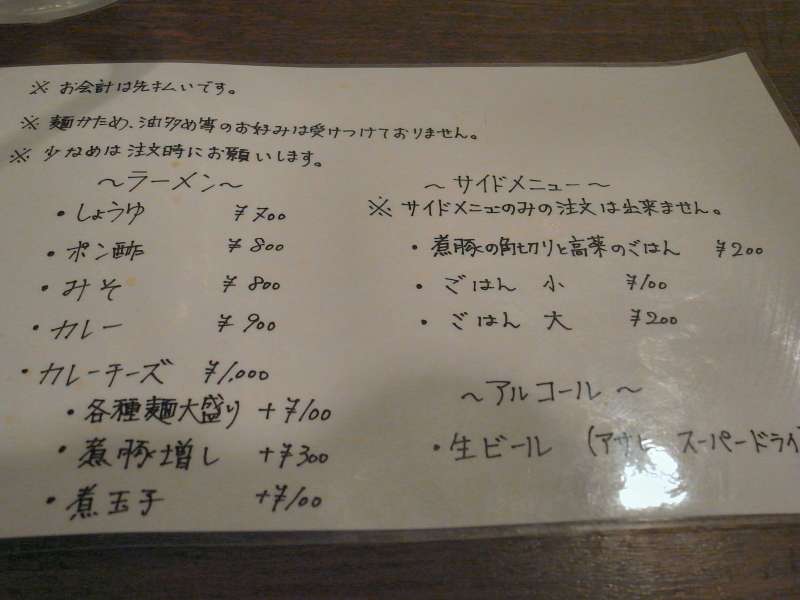 ※ お会計は先払いです。
※ 麺かため、油多め等のお好みは受けつけておりません。
※ 少なめは注文時にお願いします。
～ラーメン～
・しょうゆ ¥700
・ポン酢 ¥800
・みそ ¥800
・カレー ¥900
・カレーチーズ ¥1,000
・各種麺大盛り +¥100
・煮豚増し +¥300
・煮玉子 +¥100
～サイドメニュー～
※ サイドメニューのみの注文は出来ません。
・煮豚の角切りと高菜のごはん ¥200
・ごはん 小 ¥100
・ごはん 大 ¥200
～アルコール～
・生ビール (アサヒ スーパードライ